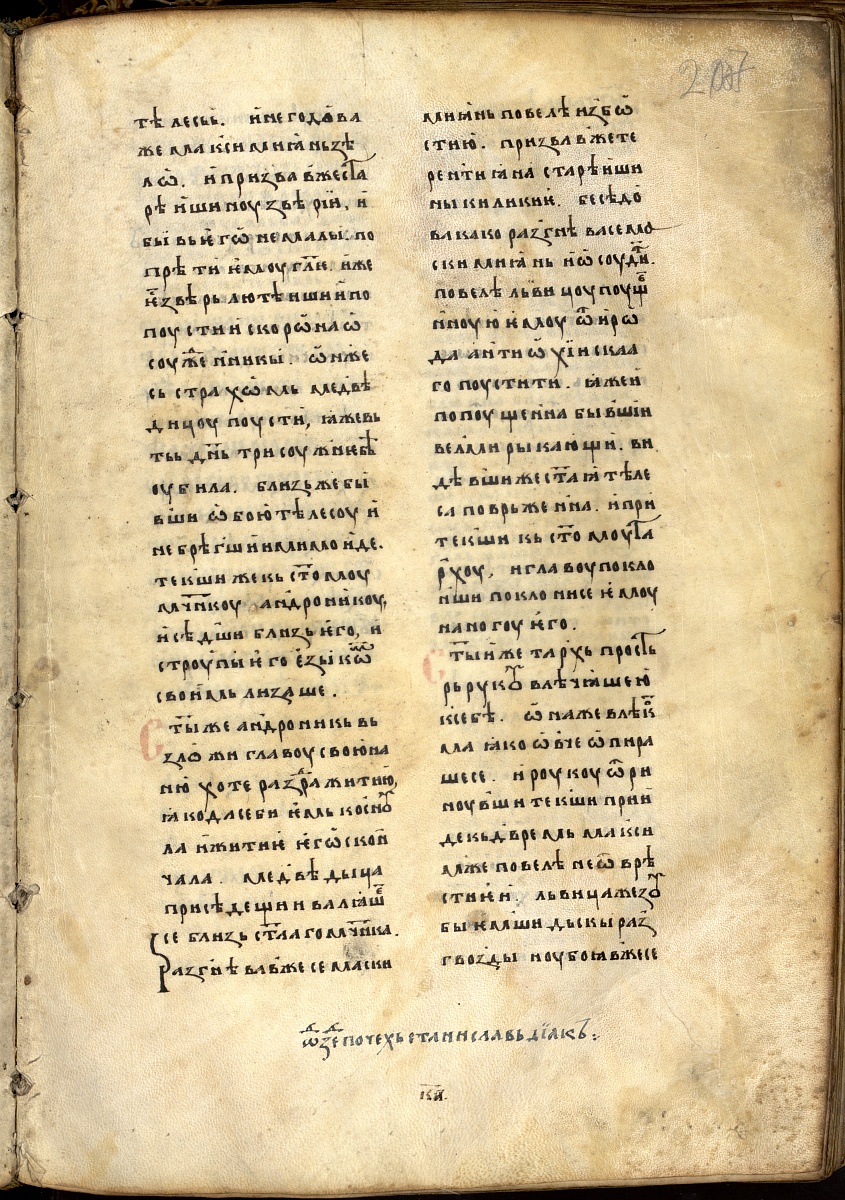 тѣлесьі. и҆ негодова
же маѯимиꙗньзѣ
лѡ. и҆призвавжеста
рѣишиноу звѣрїи, и҆
бывьи҆егѡнемалы. по
прѣти и҆емоу глю. и҆же
и҆звѣрьлютѣишиипо
поустии скорѡнаѡ
соуж҆еникы. ѡнже
сь страхѡмь медвѣ
дицоу поусти, ꙗжевь
тьь днь трисоужникы
оубила. близьжебы
вши ѡбоютѣлесоу и҆
небрѣгшиимимои҆де.
текшижекь стомоу
мчнкоу андроникоу,
и҆сѣдши близьи҆его, и҆
строупыи҆его е҆зыкѡм
своимь лизаше.
Стыже андроникь вь
зложи главоусвоюна
ню хоте раз҆дражитию,
ꙗкодасебиемькосноу
ла и҆житие и҆егѡскон
чала. медвѣдыца
присѣдешии валꙗше
се близь стлагомчнка.
Разгнѣвавжесемаѯи
миꙗнь повелѣ и҆збѡ
стию. призвавжете
рентиꙗна старѣиши
ны киликие. бесѣдо
вакако разгнѣваесема
ѯимиꙗнь и҆ѡ соудти.
повелѣ львицоу поуще
нноуюи҆емоу ѿиро
да антиѡхїискаа
го поустити. ꙗжеи
попоущенна бывшии
велми рыкающи. ви
дѣвшижестаа тѣле
са повръженна. и҆при
текши кь стомоу та
рхоу, и главоупокло
нши поклонисе и҆емоу
наногоу и҆его.
Стыи же тархь прость
рьрукоу влѣчꙗшею
ксебѣ. ѡнажевлѣко
ма ꙗко ѡвче ѡпира
шесе. и҆роукоу ѿри
ноувши текши прии
декьдвремь маѯи
мꙗже повелѣ неѿврѣ
стией. львицажезоу
быи҆емши дъскы раз
гвозди ноубоꙗвжесе
ѿзепочехьстаниславьдїакь:
ки